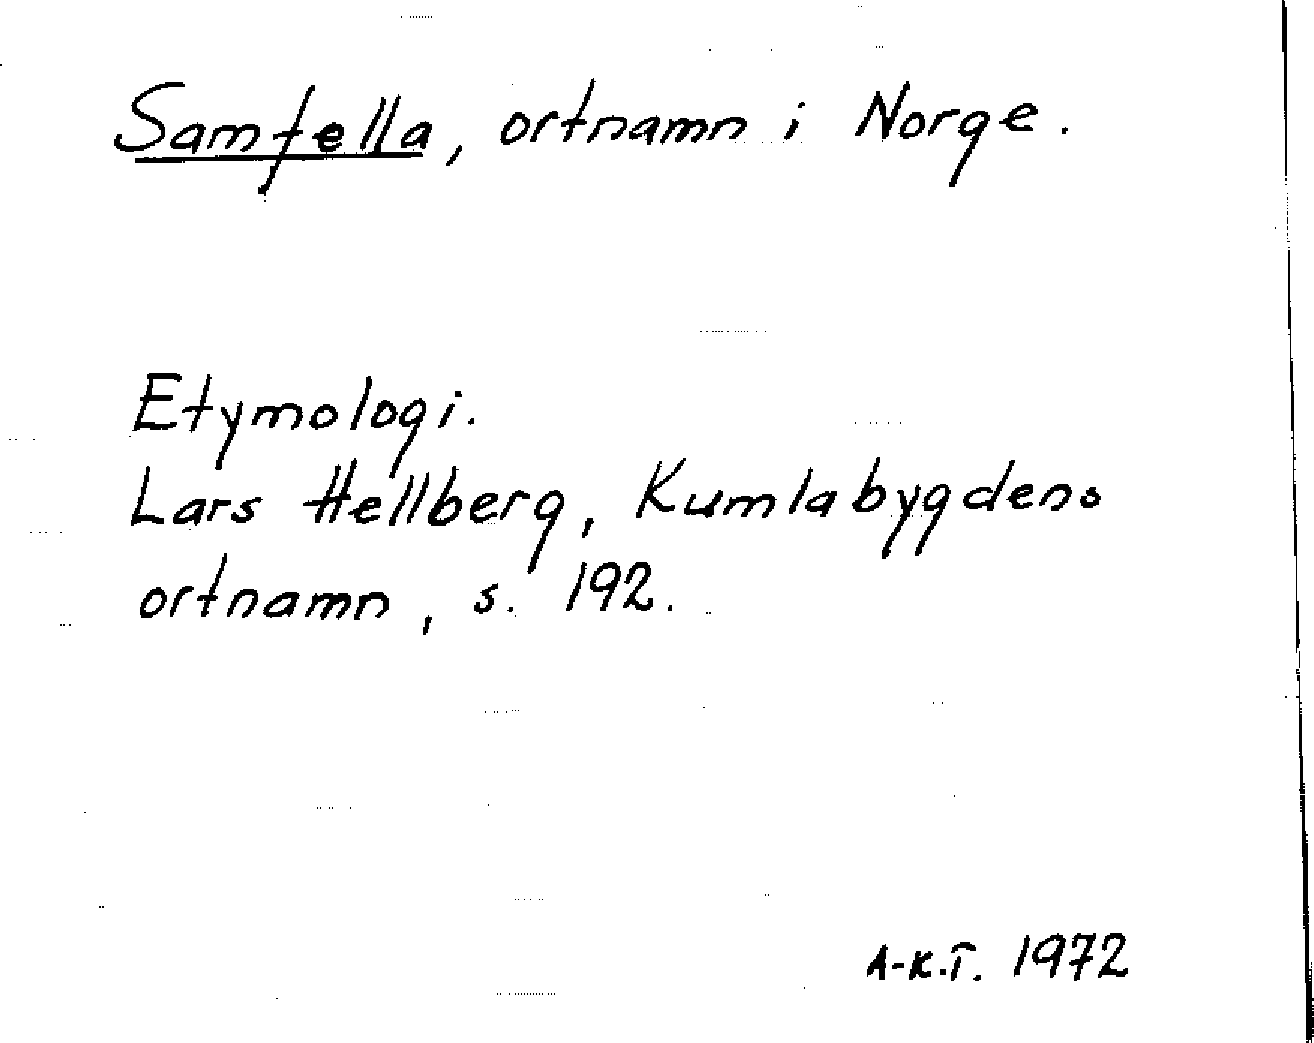 Samfella, ortnamn i Norge.
Etymologi.
Lars Hellberg, Kumlabygdens
ortnamn, s. 192.
A-K.T. 1972